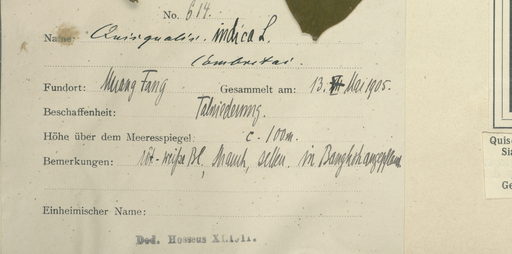 No. 614.
Name: Quisqualis. indica L.
Combretac.
Fundort: Muang Fang Gesammelt am: 13. Mai 1905.
Beschaffenheit: Talniederung.
Höhe über dem Meeresspiegel: c. 100m.
Bemerkungen: rot-weiße Bl, Strauch, selten. in Bangkok angepflanzt
Einheimischer Name:
Ded. Hosseus XI.1911.
Quis
Sia
Ge